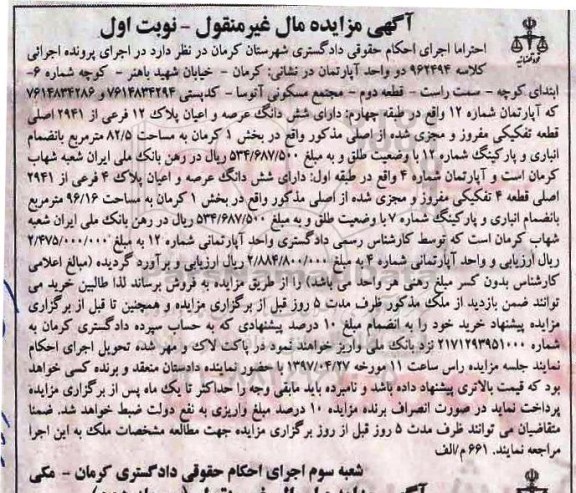 آگهی مزایده مال غیرمنقول - نوبت اول
احتراما اجرای احکام حقوقی دادگستری شهرستان کرمان در نظر دارد در اجرای پرونده اجرائی
کلاسه ۹۶۲۴۹۴ دو واحد آپارتمان در نشانی: کرمان - خیابان شهید باهنر - کوچه شماره ۶-
ابتدای کوچه - سمت راست - قطعه دوم - مجتمع مسکونی آنوسا - کدپستی ۷۶۱۴۸۳۴۲۹۴ و ۷۶۱۴۸۳۴۲۸۶
که آپارتمان شماره ۱۲ واقع در طبقه چهارم: دارای شش دانگ عرصه و اعیان پلاک ۱۲ فرعی از ۲۹۴۱ اصلی
قطعه تفکیکی مفروز و مجزی شده از اصلی مذکور واقع در بخش ۱ کرمان به مساحت ۸۲/۵ مترمربع بانضمام
انباری و پارکینگ شماره ۱۲ با وضعیت طلق و به مبلغ ۵۳۴/۶۸۷/۵۰۰ ریال در رهن بانک ملی ایران شعبه شهاب
کرمان است و آپارتمان شماره ۴ واقع در طبقه اول: دارای شش دانگ عرصه و اعیان پلاک ۴ فرعی از ۲۹۴۱
اصلی قطعه ۴ تفکیکی مفروز و مجزی شده از اصلی مذکور واقع در بخش ۱ کرمان به مساحت ۹۶/۱۶ مترمربع
بانضمام انباری و پارکینگ شماره ۷ با وضعیت طلق و به مبلغ ۵۳۴/۶۸۷/۵۰۰ ریال در رهن بانک ملی ایران شعبه
شهاب کرمان است که توسط کارشناس رسمی دادگستری واحد آپارتمانی شماره ۱۲ به مبلغ ۲/۴۷۵/۰۰۰/۰۰۰
ریال ارزیابی و واحد آپارتمانی شماره ۴ به مبلغ ۲/۸۸۴/۸۰۰/۰۰۰ ریال ارزیابی و برآورد گردیده (مبالغ اعلامی
کارشناس بدون کسر مبلغ رهنی هر واحد می باشد) را از طریق مزایده به فروش برساند لذا طالبین خرید می
توانند ضمن بازدید از ملک مذکور ظرف مدت ۵ روز قبل از برگزاری مزایده و همچنین تا قبل از برگزاری
مزایده پیشنهاد خرید خود را به انضمام مبلغ ۱۰ درصد پیشنهادی که به حساب سپرده دادگستری کرمان به
شماره ۲۱۷۱۲۹۳۹۵۱۰۰۰ نزد بانک ملی واریز خواهند نمود در پاکت لاک و مهر شده تحویل اجرای احکام
نمایند جلسه مزایده راس ساعت ۱۱ مورخه ۱۳۹۷/۰۴/۲۷ با حضور نماینده دادستان منعقد و برنده کسی خواهد
بود که قیمت بالاتری پیشنهاد داده باشد و نامبرده باید مابقی وجه را حداکثر تا یک ماه پس از برگزاری مزایده
پرداخت نماید در صورت انصراف برنده مزایده ۱۰ درصد مبلغ واریزی به نفع دولت ضبط خواهد شد. ضمنا
متقاضیان می توانند ظرف مدت ۵ روز قبل از روز برگزاری مزایده جهت مطالعه مشخصات ملک به این اجرا
مراجعه نمایند. ۶۶۱ م/الف
شعبه سوم اجرای احکام حقوقی دادگستری کرمان - مکی